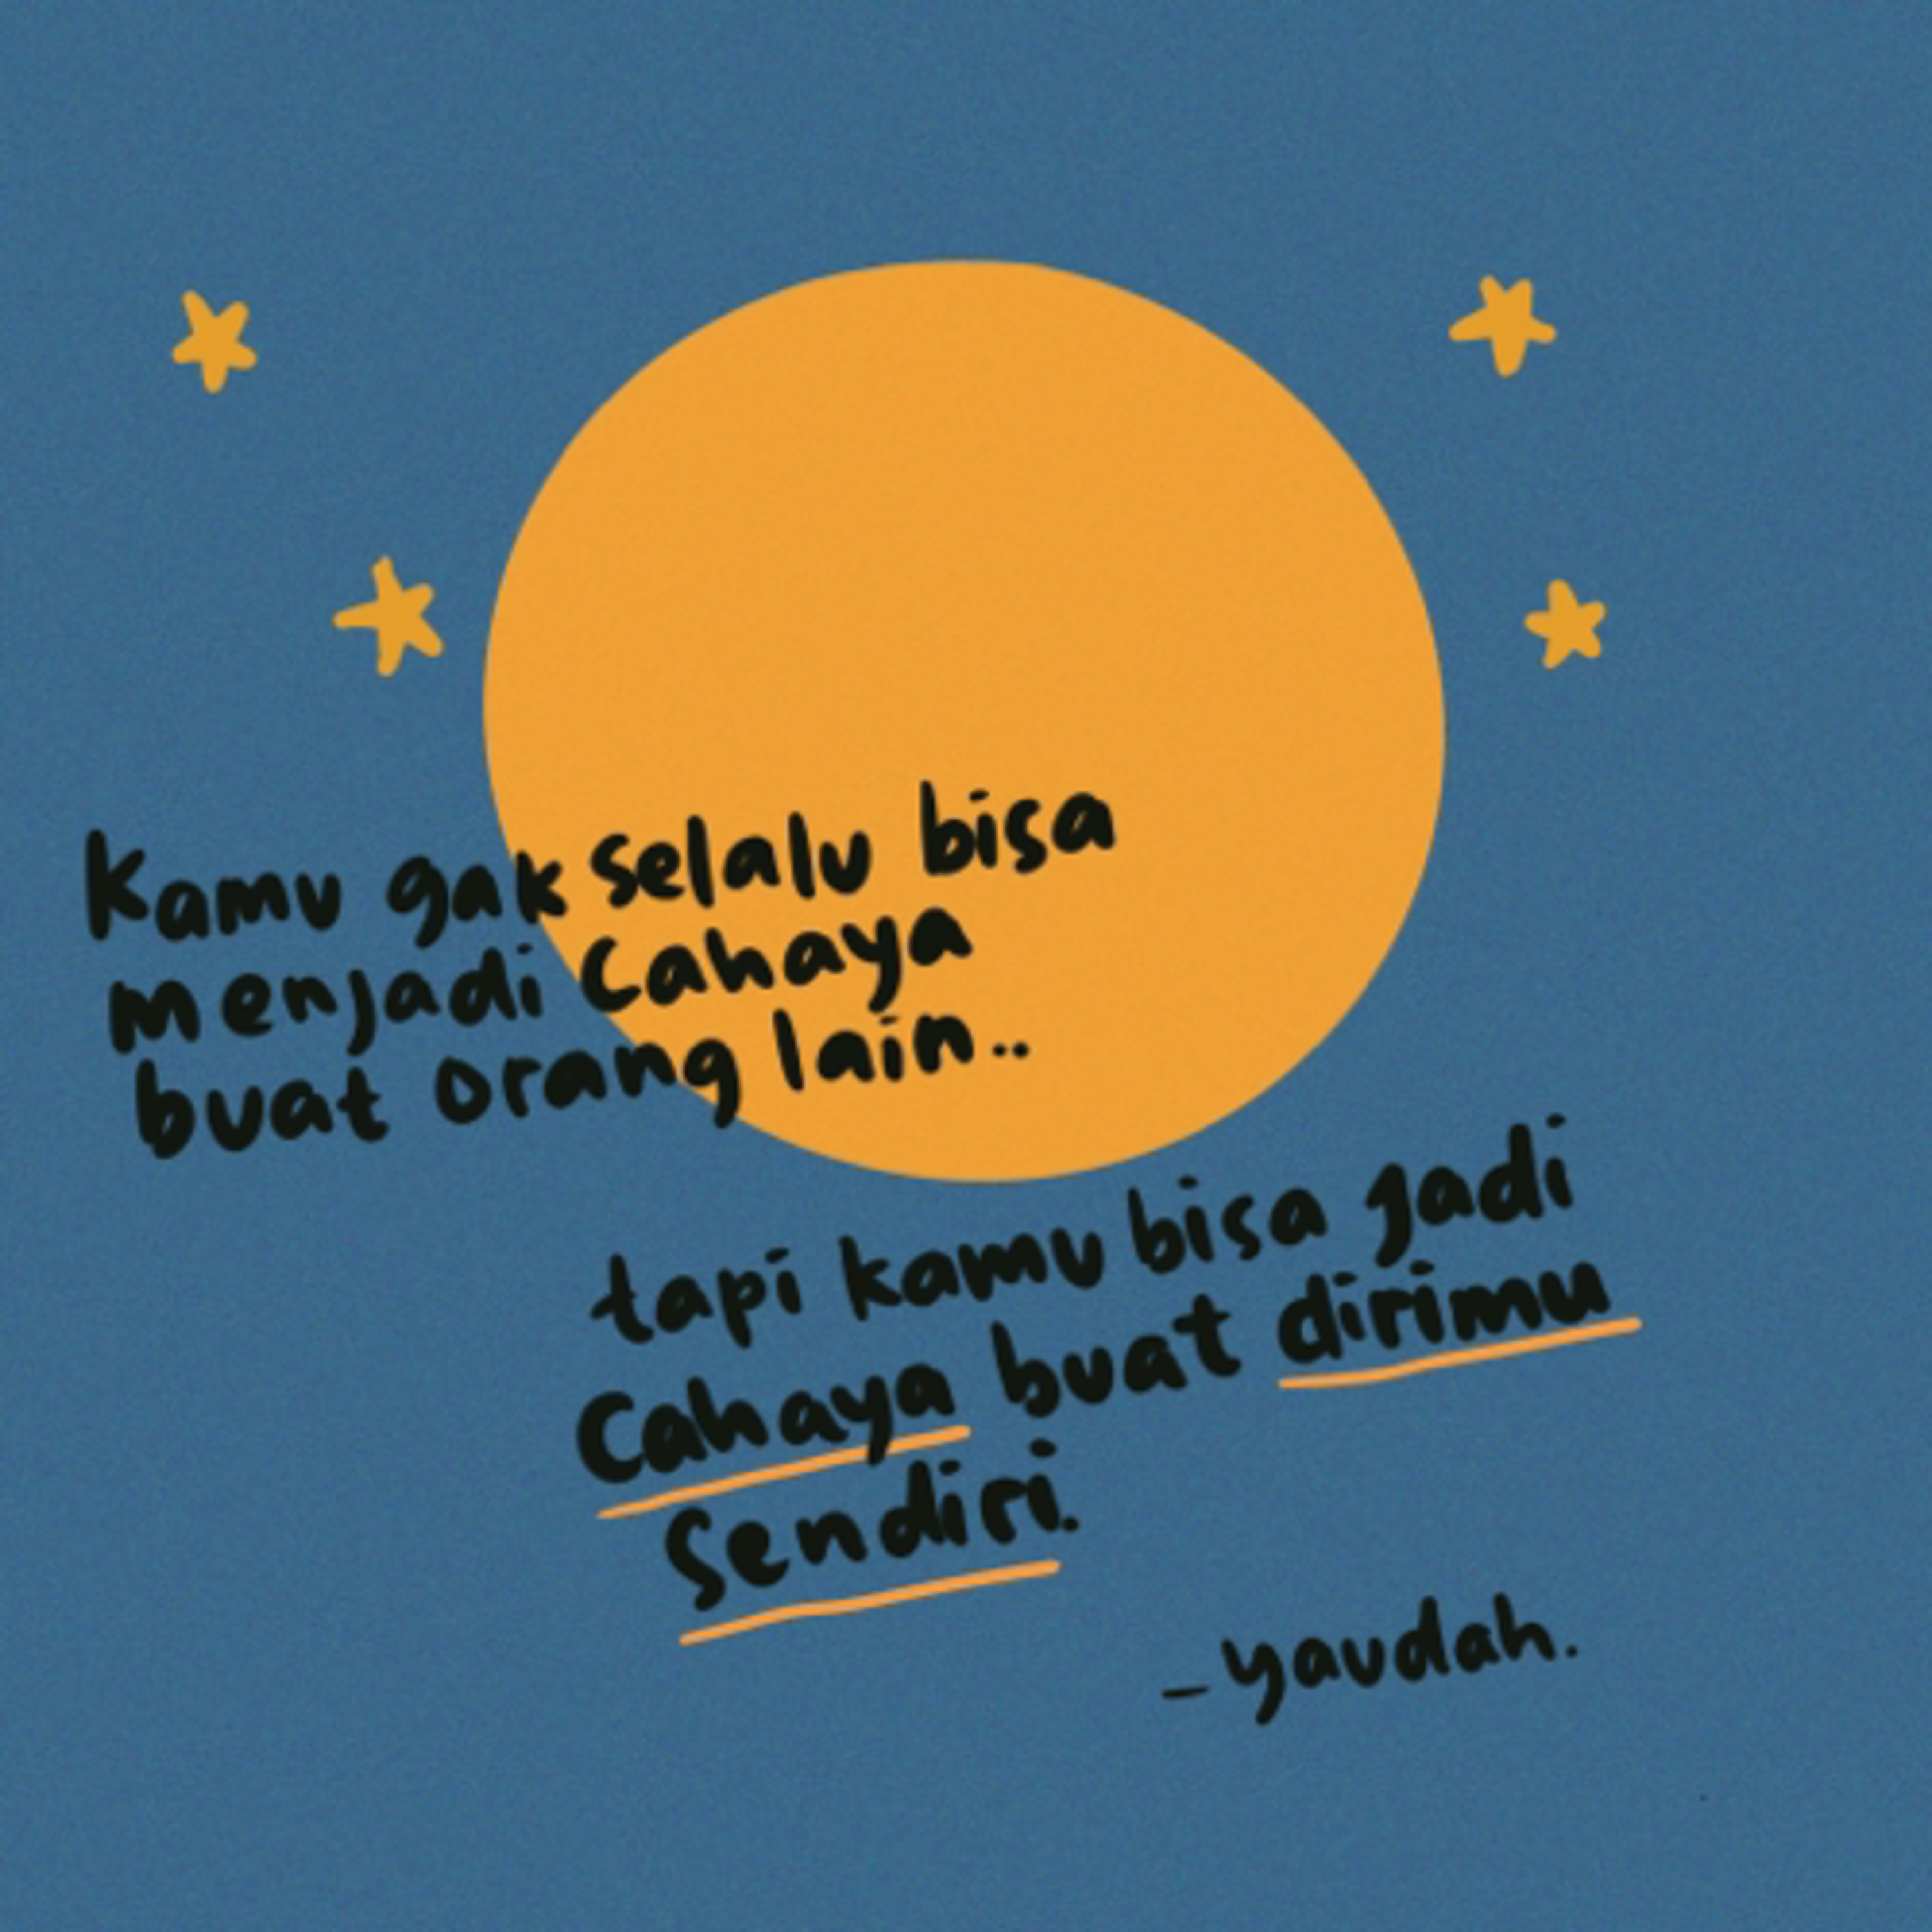 Kamu gak selalu bisa
menjadi Cahaya
buat orang lain..
tapi kamu bisa jadi
Cahaya buat dirimu
Sendiri.
- yaudah.